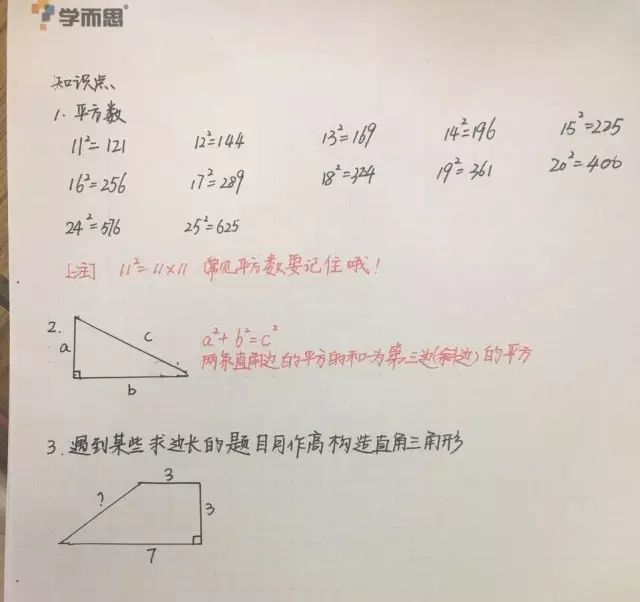 学而思
知识点、
1. 平方数
11²=121 12²=144 13²=169 14²=196 15²=225
16²=256 17²=289 18²=324 19²=361 20²=400
24²=576 25²=625
[注] 11²=11×11 常见平方数要记住哦!
2.
a c
b
a²+b²=c²
两条直角边的平方的和为第三边(斜边)的平方
3. 遇到某些求边长的题目同作高构造直角三角形
3
? 3
7